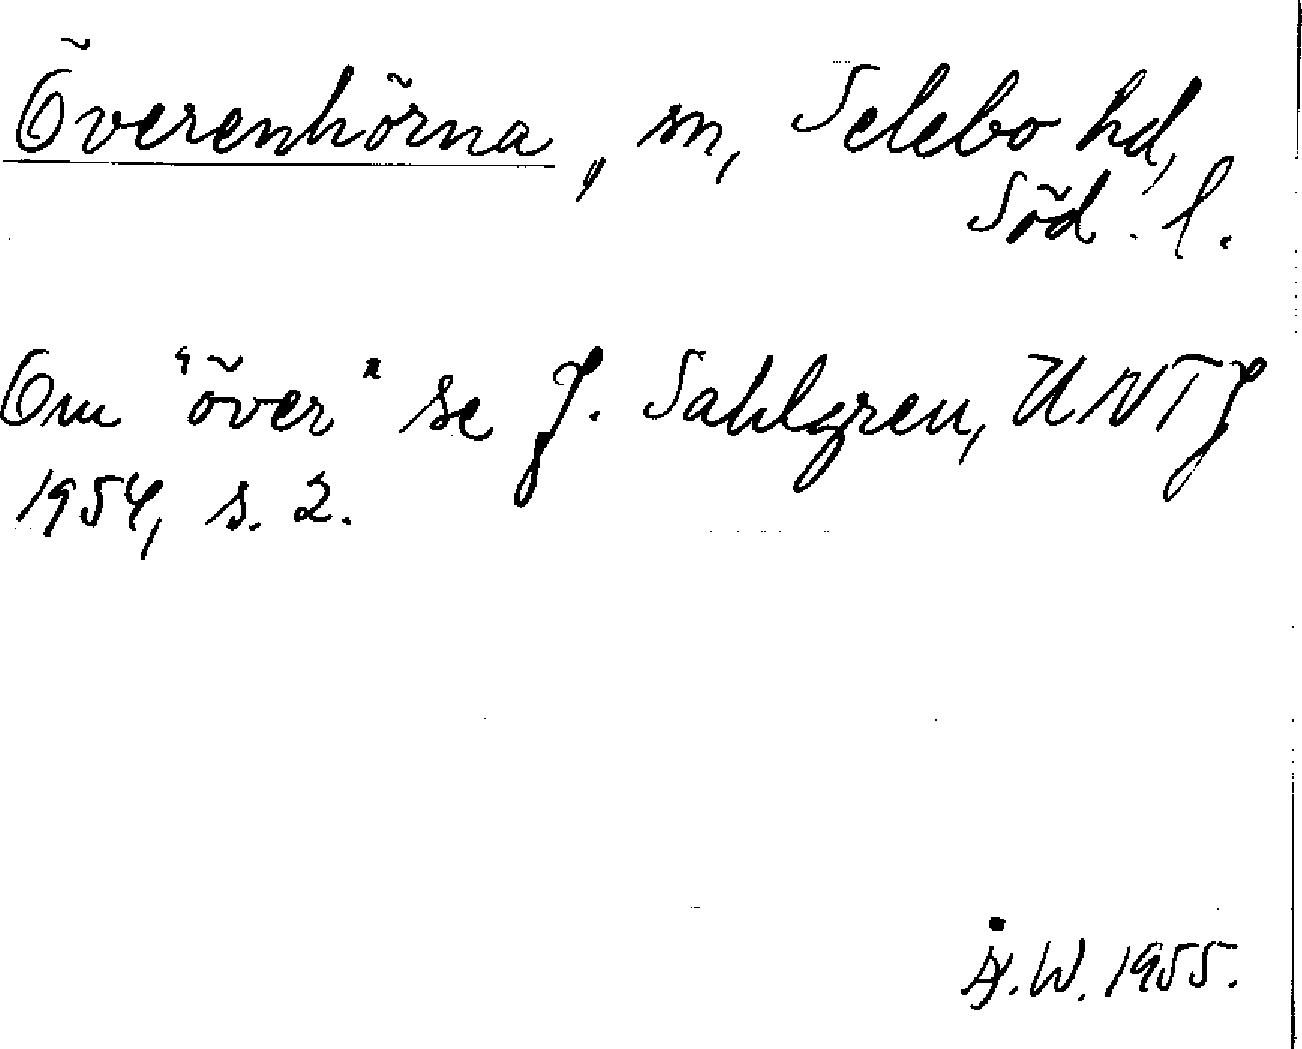 Överenhörna, sn, Selebo hd,
Söd. l.
Om "över" se J. Sahlgren, UNT J
1954, s. 2.
Å. W. 1955.